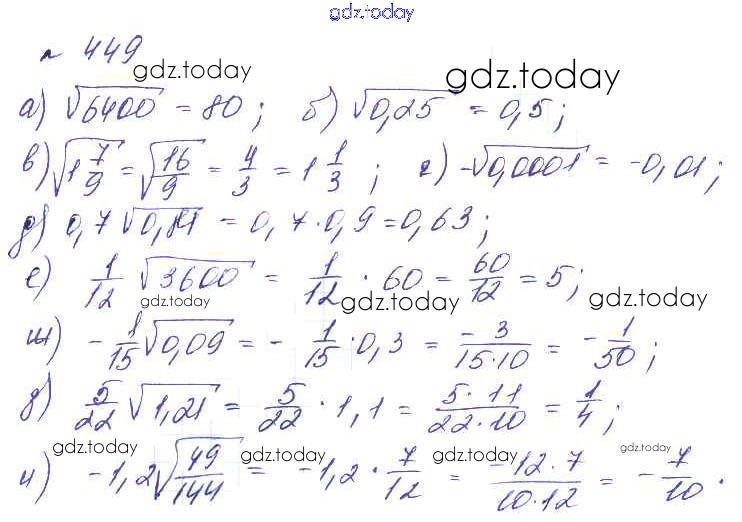 gdz.today
№ 449
gdz.today gdz.today
а) √6400 = 80; б) √0,25 = 0,5;
в) √1 7/9 = √16/9 = 4/3 = 1 1/3; г) -√0,0001 = -0,01;
д) 0,7 √0,81 = 0,7·0,9 = 0,63;
е) 1/12 √3600 = 1/12 · 60 = 60/12 = 5;
gdz.today gdz.today gdz.today
ж) - 1/15 √0,09 = - 1/15 · 0,3 = -3/(15·10) = - 1/50;
з) 5/22 √1,21 = 5/22 · 1,1 = (5·11)/(22·10) = 1/4;
gdz.today gdz.today gdz.today gdz.today
и) -1,2 √49/144 = -1,2 · 7/12 = (-12·7)/(10·12) = - 7/10.